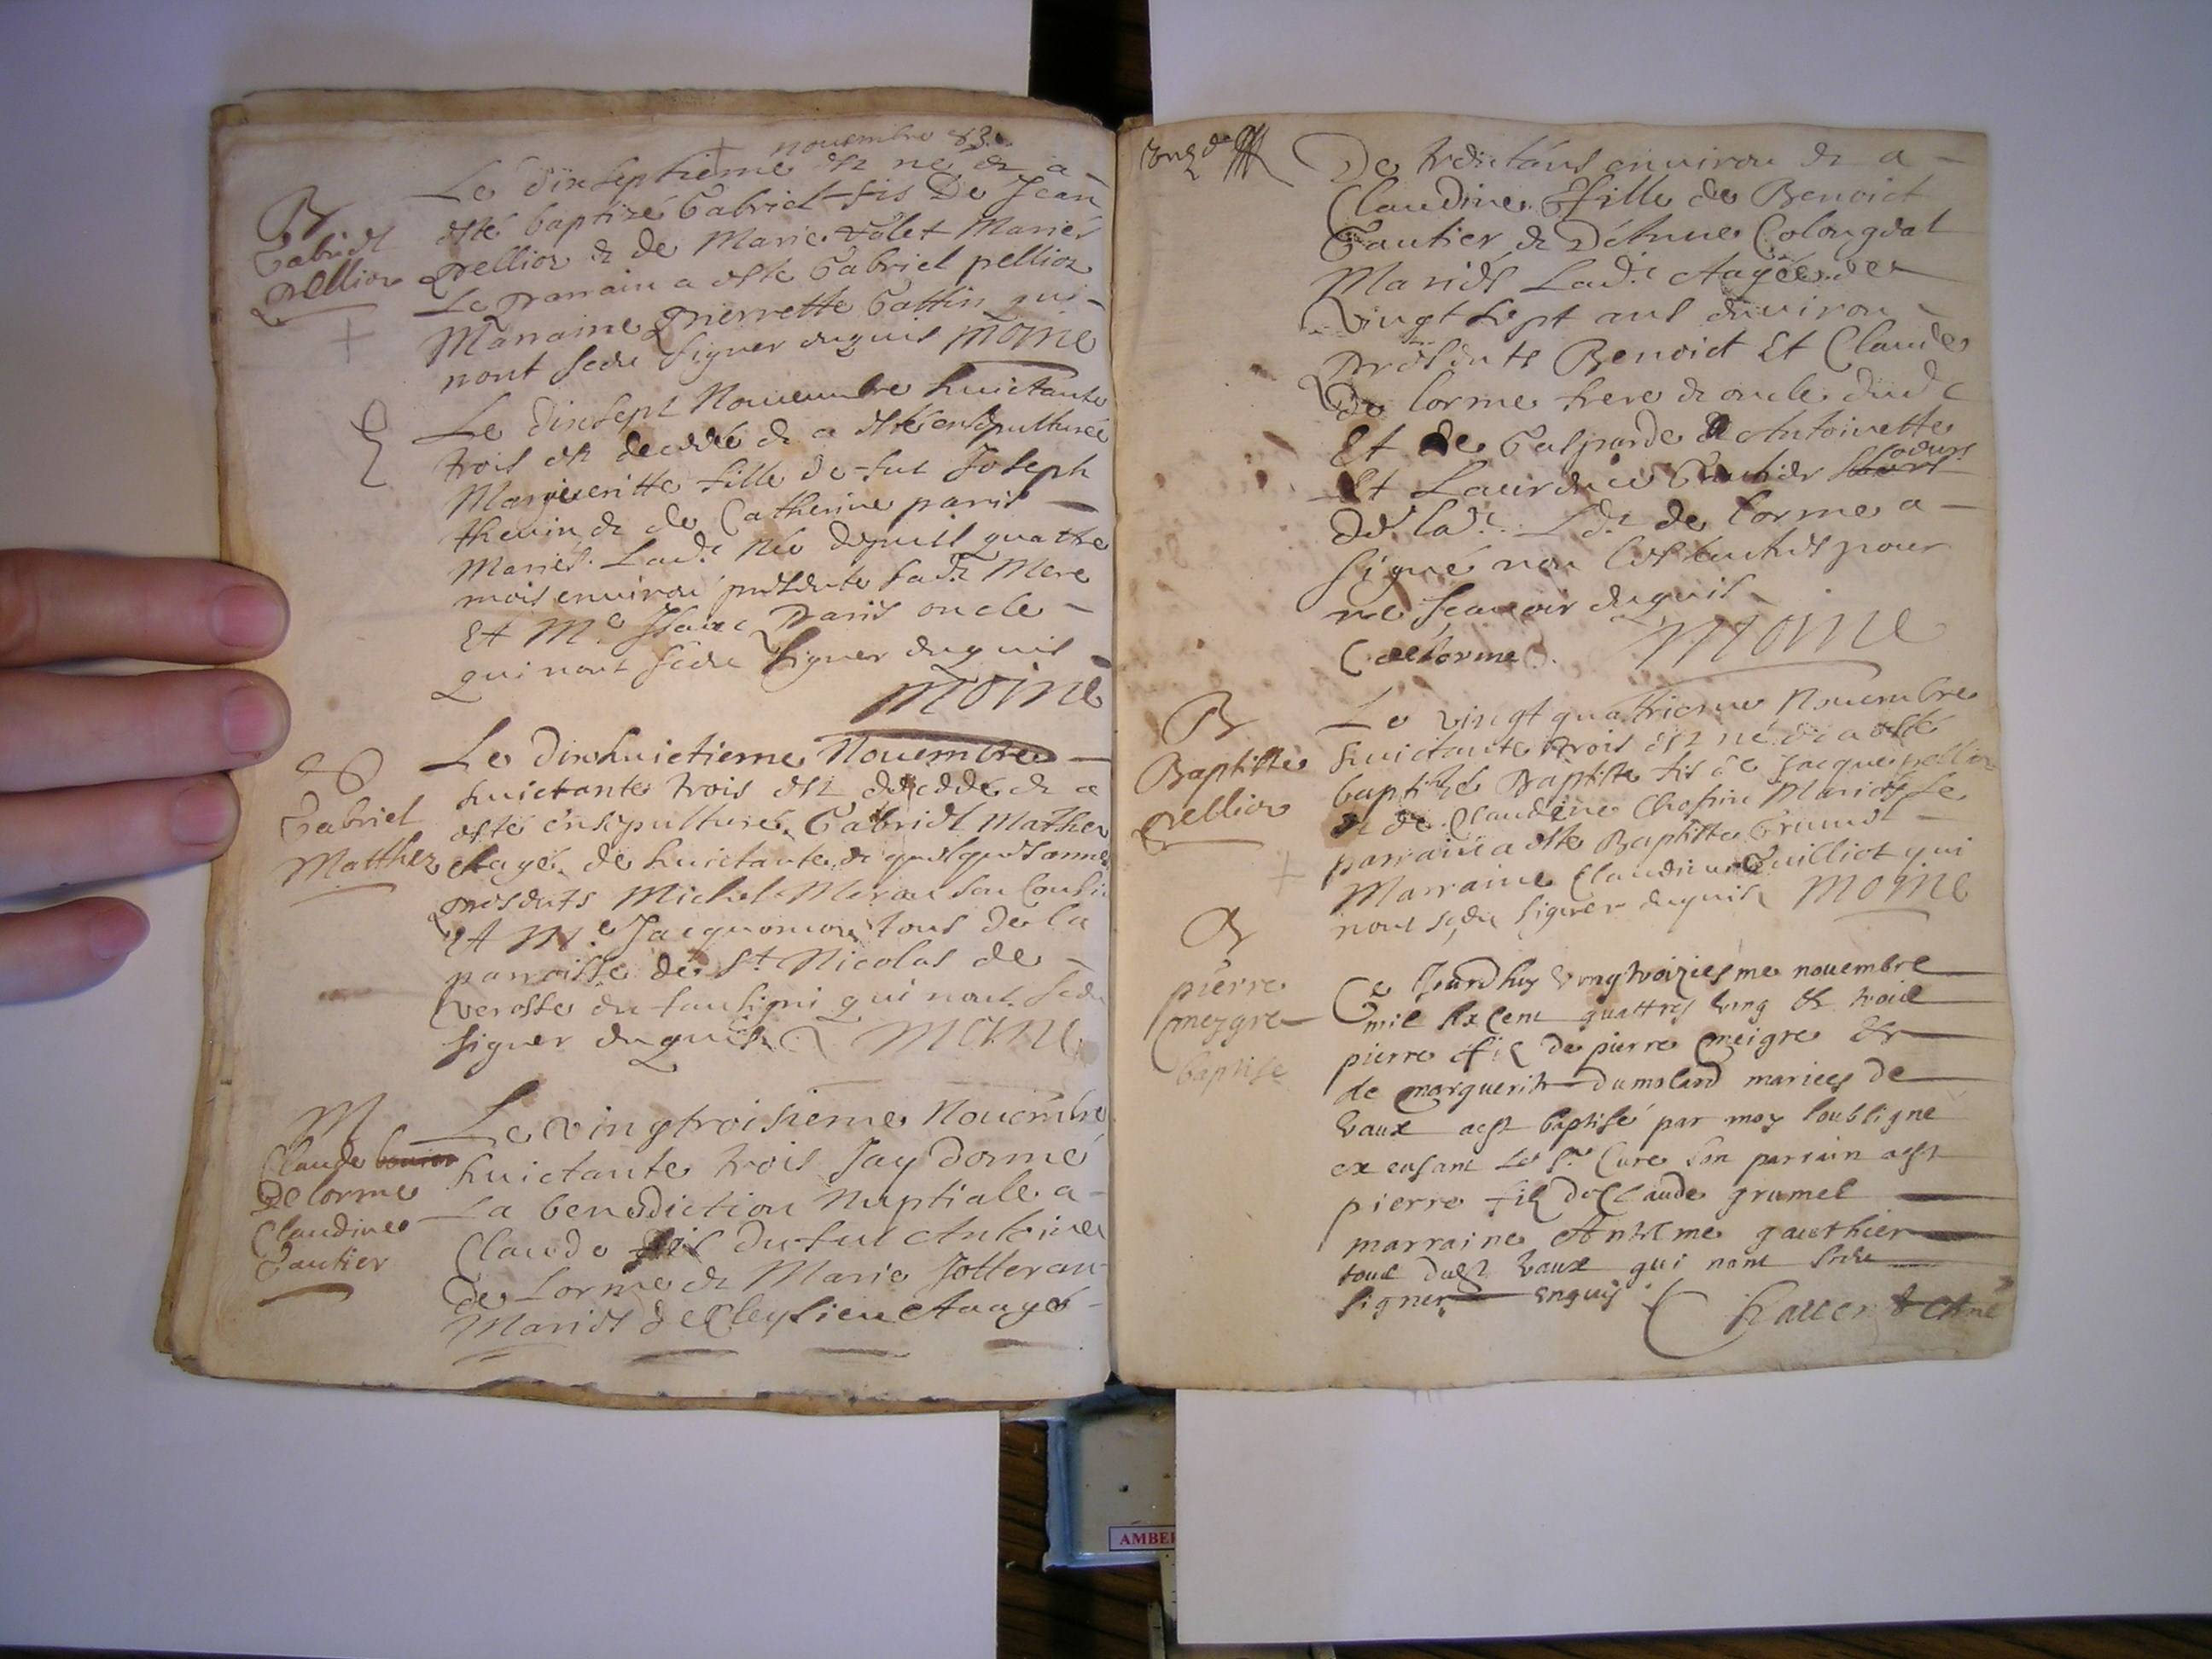 nouembre 83.
Le dixseptieme est né & a
esté baptizé Gabriel fis De Jean
pellioz & de Marie Valet Mariés
Le parrain a este Gabriel pellioz
Marraine pierrette Gattin qui
nont sceu signer enquis Moine
B
Gabriel
pellioz
Le dixsept Nouembre huictante
trois est decedée & a esté ensepulturée
Margueritte fille de fut Joseph
thenin & de Catherine paris
Mariés. Lad.e née depuis quattre
mois enuiron presente sad.e Mere
Et M.e Isaac paris oncle
qui nont sceu signer enquis
Moine
Le dixhuictieme Nouembre
huictante trois est decedde & a
esté ensepulturé Gabriel Mathez
Aagé de huictante & quelques années
presents Michel son Cousin
Et M.e Jacquemoz tous de la
parroisse de St Nicolas de
verosse en faussigni qui nont sceu
signer enquis Moine
Gabriel
Matthez
Le vingtroisieme Nouembre
huictante trois Jay donné
La benediction Nuptiale a
Claude fils du fut Antoine
De Lorme & Marie Jotteran
Mariés de Cleysieu Aagé
M
Claude
De lorme
Claudine
Gautier
De trente ans enuiron & a
Claudine ffille de Benoict
Gautier & D'Anne Colongeat
Mariés Lad.e Aagée de
vingt sept ans enuiron
presents Benoict Et Claude
De lorme frere & oncle dud
Et de Gasparde & Antoinette
Et Laurence Gautier soeurs
de lad.e Led. de lorme a
signé non les autres pour
ne scauoir enquis
C delorme. Moine
Le vingt quattrieme Nouembre
huictante trois est né & a esté
baptizé Baptiste fis de Jacque pellioz
& de Claudine Mariés Le
parrain a este Baptiste Grumel
Marraine Claudine Guilliot qui
nont sceu signer enquis Moine
B
Baptiste
pellioz
B
pierre
meygre
baptise
Ce Jourdhuy vingtroiziesme nouembre
mil six cent quattres ving & trois
pierre fils de pierre meigre &
de marguerite dumoland mariees de
vaux a est baptisé par moy soubsigné
en ensant le sr Cure son parrain a est
pierre fils de Claude grumel
marraine Anteme gauthier
tous dud vaux qui nont sceu
signer enquis